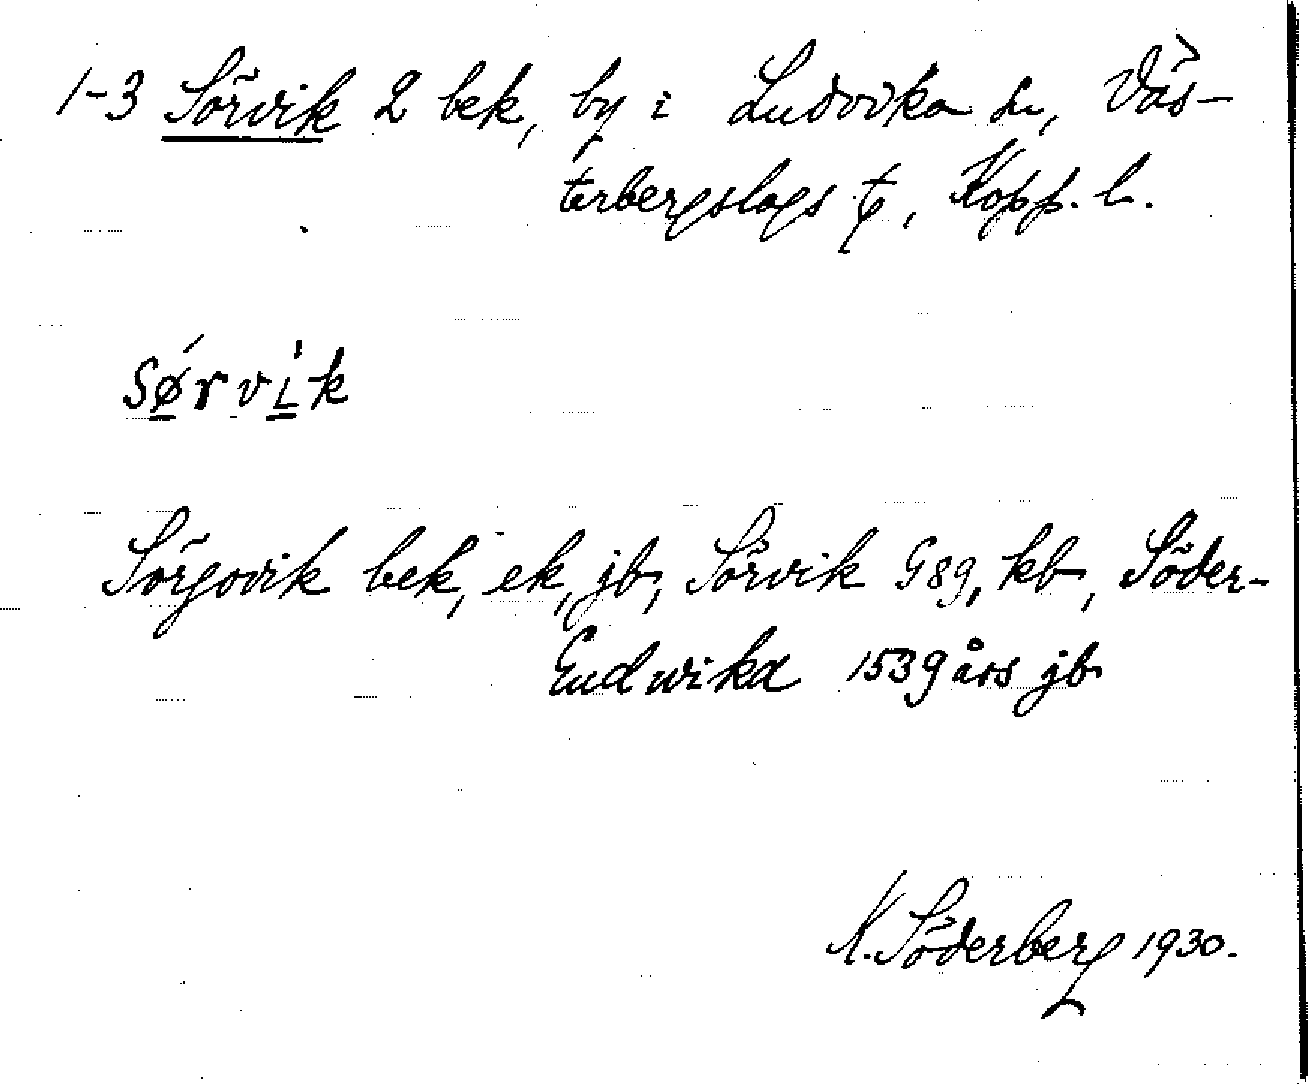 1-3 Sörvik 2 bek, by i Ludvika sn, Väs-
terbergslags tg, Kopp. l.
Sørvik
Sörgovik bek, ek, jb, Sörvik G89, kb, Söder-
Eudwika 1539 års jb
K. Söderberg 1930.